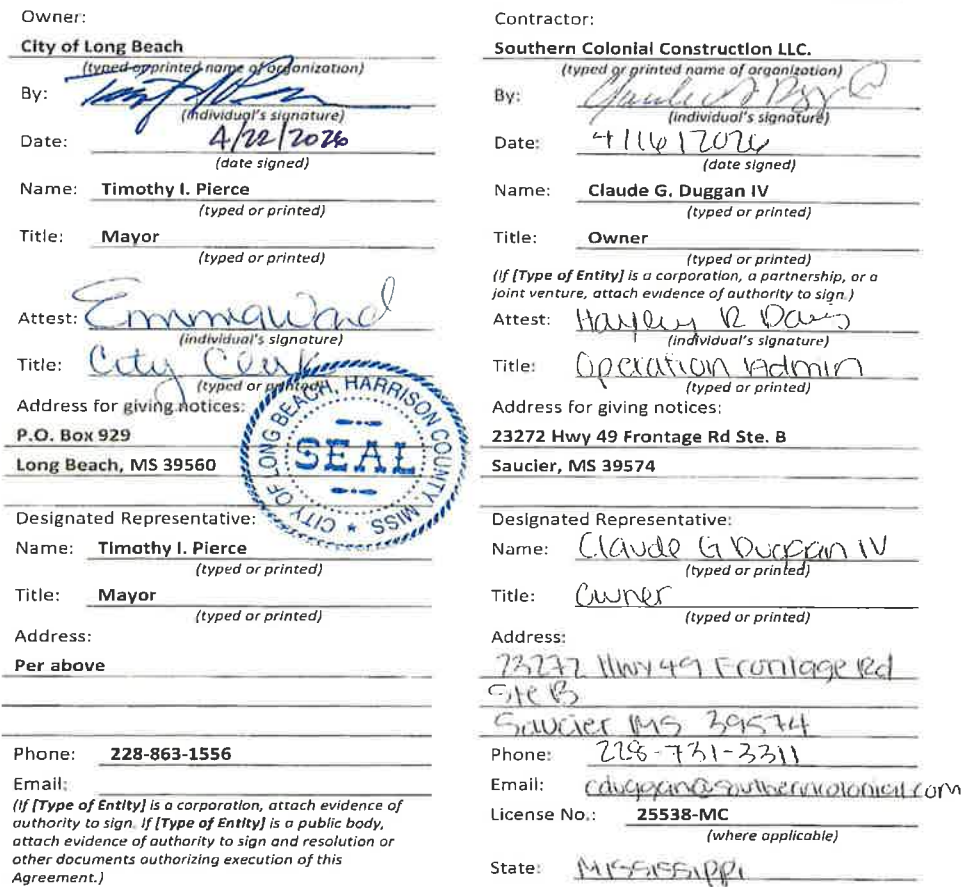 Owner:
City of Long Beach
(typed or printed name of organization)
By:
(individual's signature)
Date: 4/22/2026
(date signed)
Name: Timothy I. Pierce
(typed or printed)
Title: Mayor
(typed or printed)
Attest: Emma Ward
(individual's signature)
Title: City Clerk
(typed or printed)
Address for giving notices:
P.O. Box 929
Long Beach, MS 39560
CITY OF LONG BEACH, HARRISON COUNTY, MISS. ★
SEAL
Designated Representative:
Name: Timothy I. Pierce
(typed or printed)
Title: Mayor
(typed or printed)
Address:
Per above
Phone: 228-863-1556
Email:
(If [Type of Entity] is a corporation, attach evidence of
authority to sign. If [Type of Entity] is a public body,
attach evidence of authority to sign and resolution or
other documents authorizing execution of this
Agreement.)
Contractor:
Southern Colonial Construction LLC.
(typed or printed name of organization)
By:
(individual's signature)
Date: 4/16/2026
(date signed)
Name: Claude G. Duggan IV
(typed or printed)
Title: Owner
(typed or printed)
(If [Type of Entity] is a corporation, a partnership, or a
joint venture, attach evidence of authority to sign.)
Attest: Hayley R Davis
(individual's signature)
Title: Operation Admin
(typed or printed)
Address for giving notices:
23272 Hwy 49 Frontage Rd Ste. B
Saucier, MS 39574
Designated Representative:
Name: Claude G Duggan IV
(typed or printed)
Title: Owner
(typed or printed)
Address:
23272 Hwy 49 Frontage Rd
Ste B
Saucier MS 39574
Phone: 228-731-3311
Email: cduggan@southerncolonial.com
License No.: 25538-MC
(where applicable)
State: Mississippi